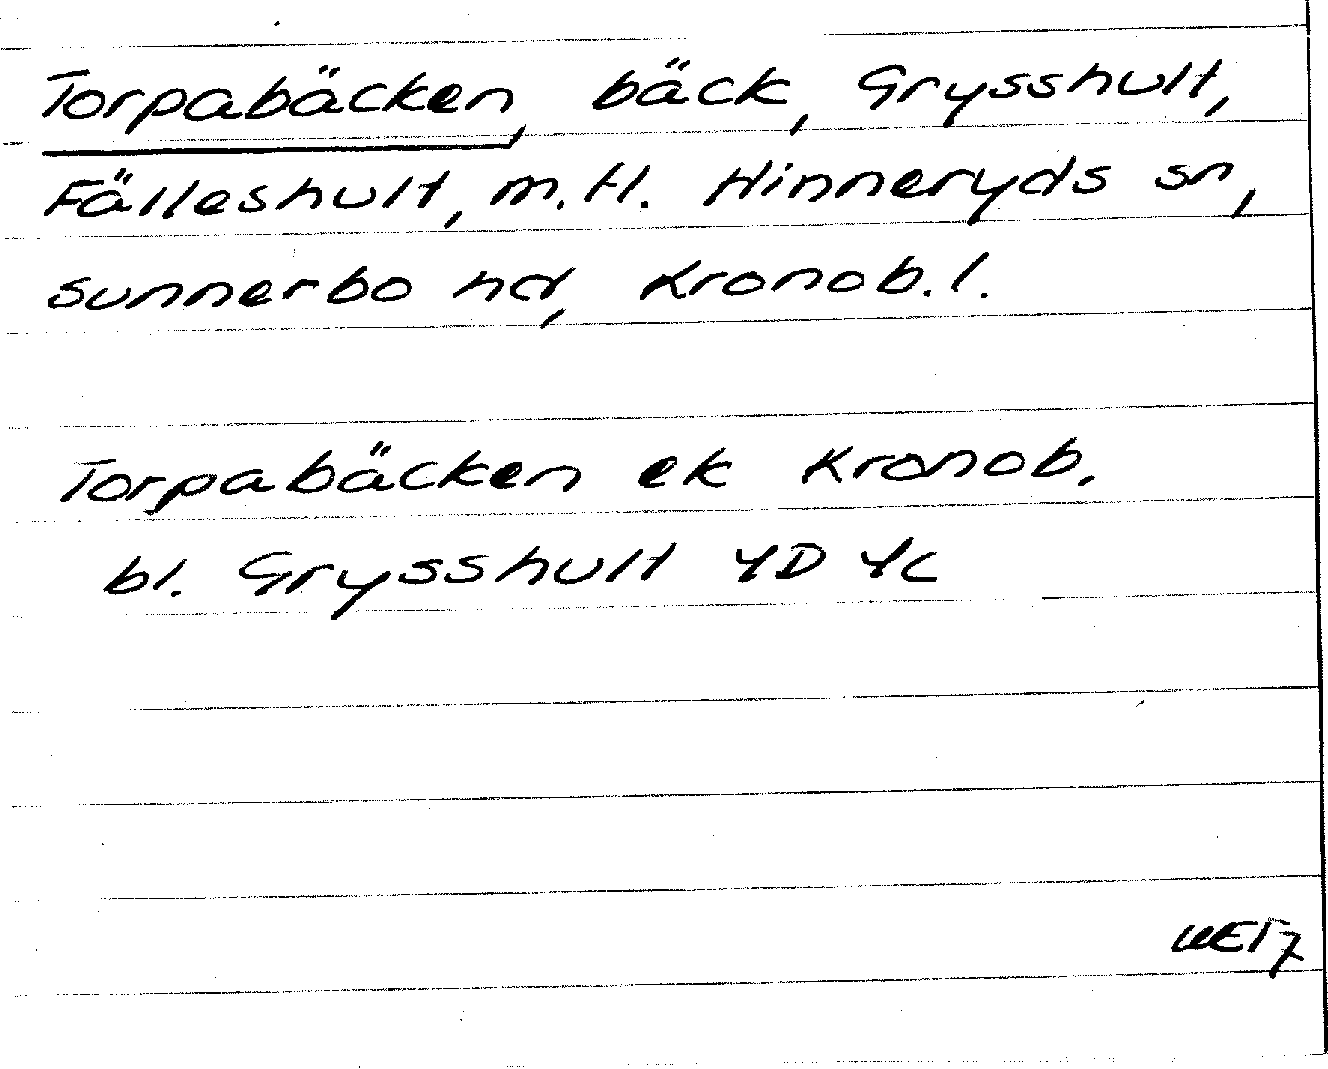 Torpabäcken, bäck, Grysshult,
Fälleshult, m.fl. Hinneryds sn,
Sunnerbo hd, Kronob.l.
Torpabäcken ek Kronob.
bl. Grysshult 4D 4c